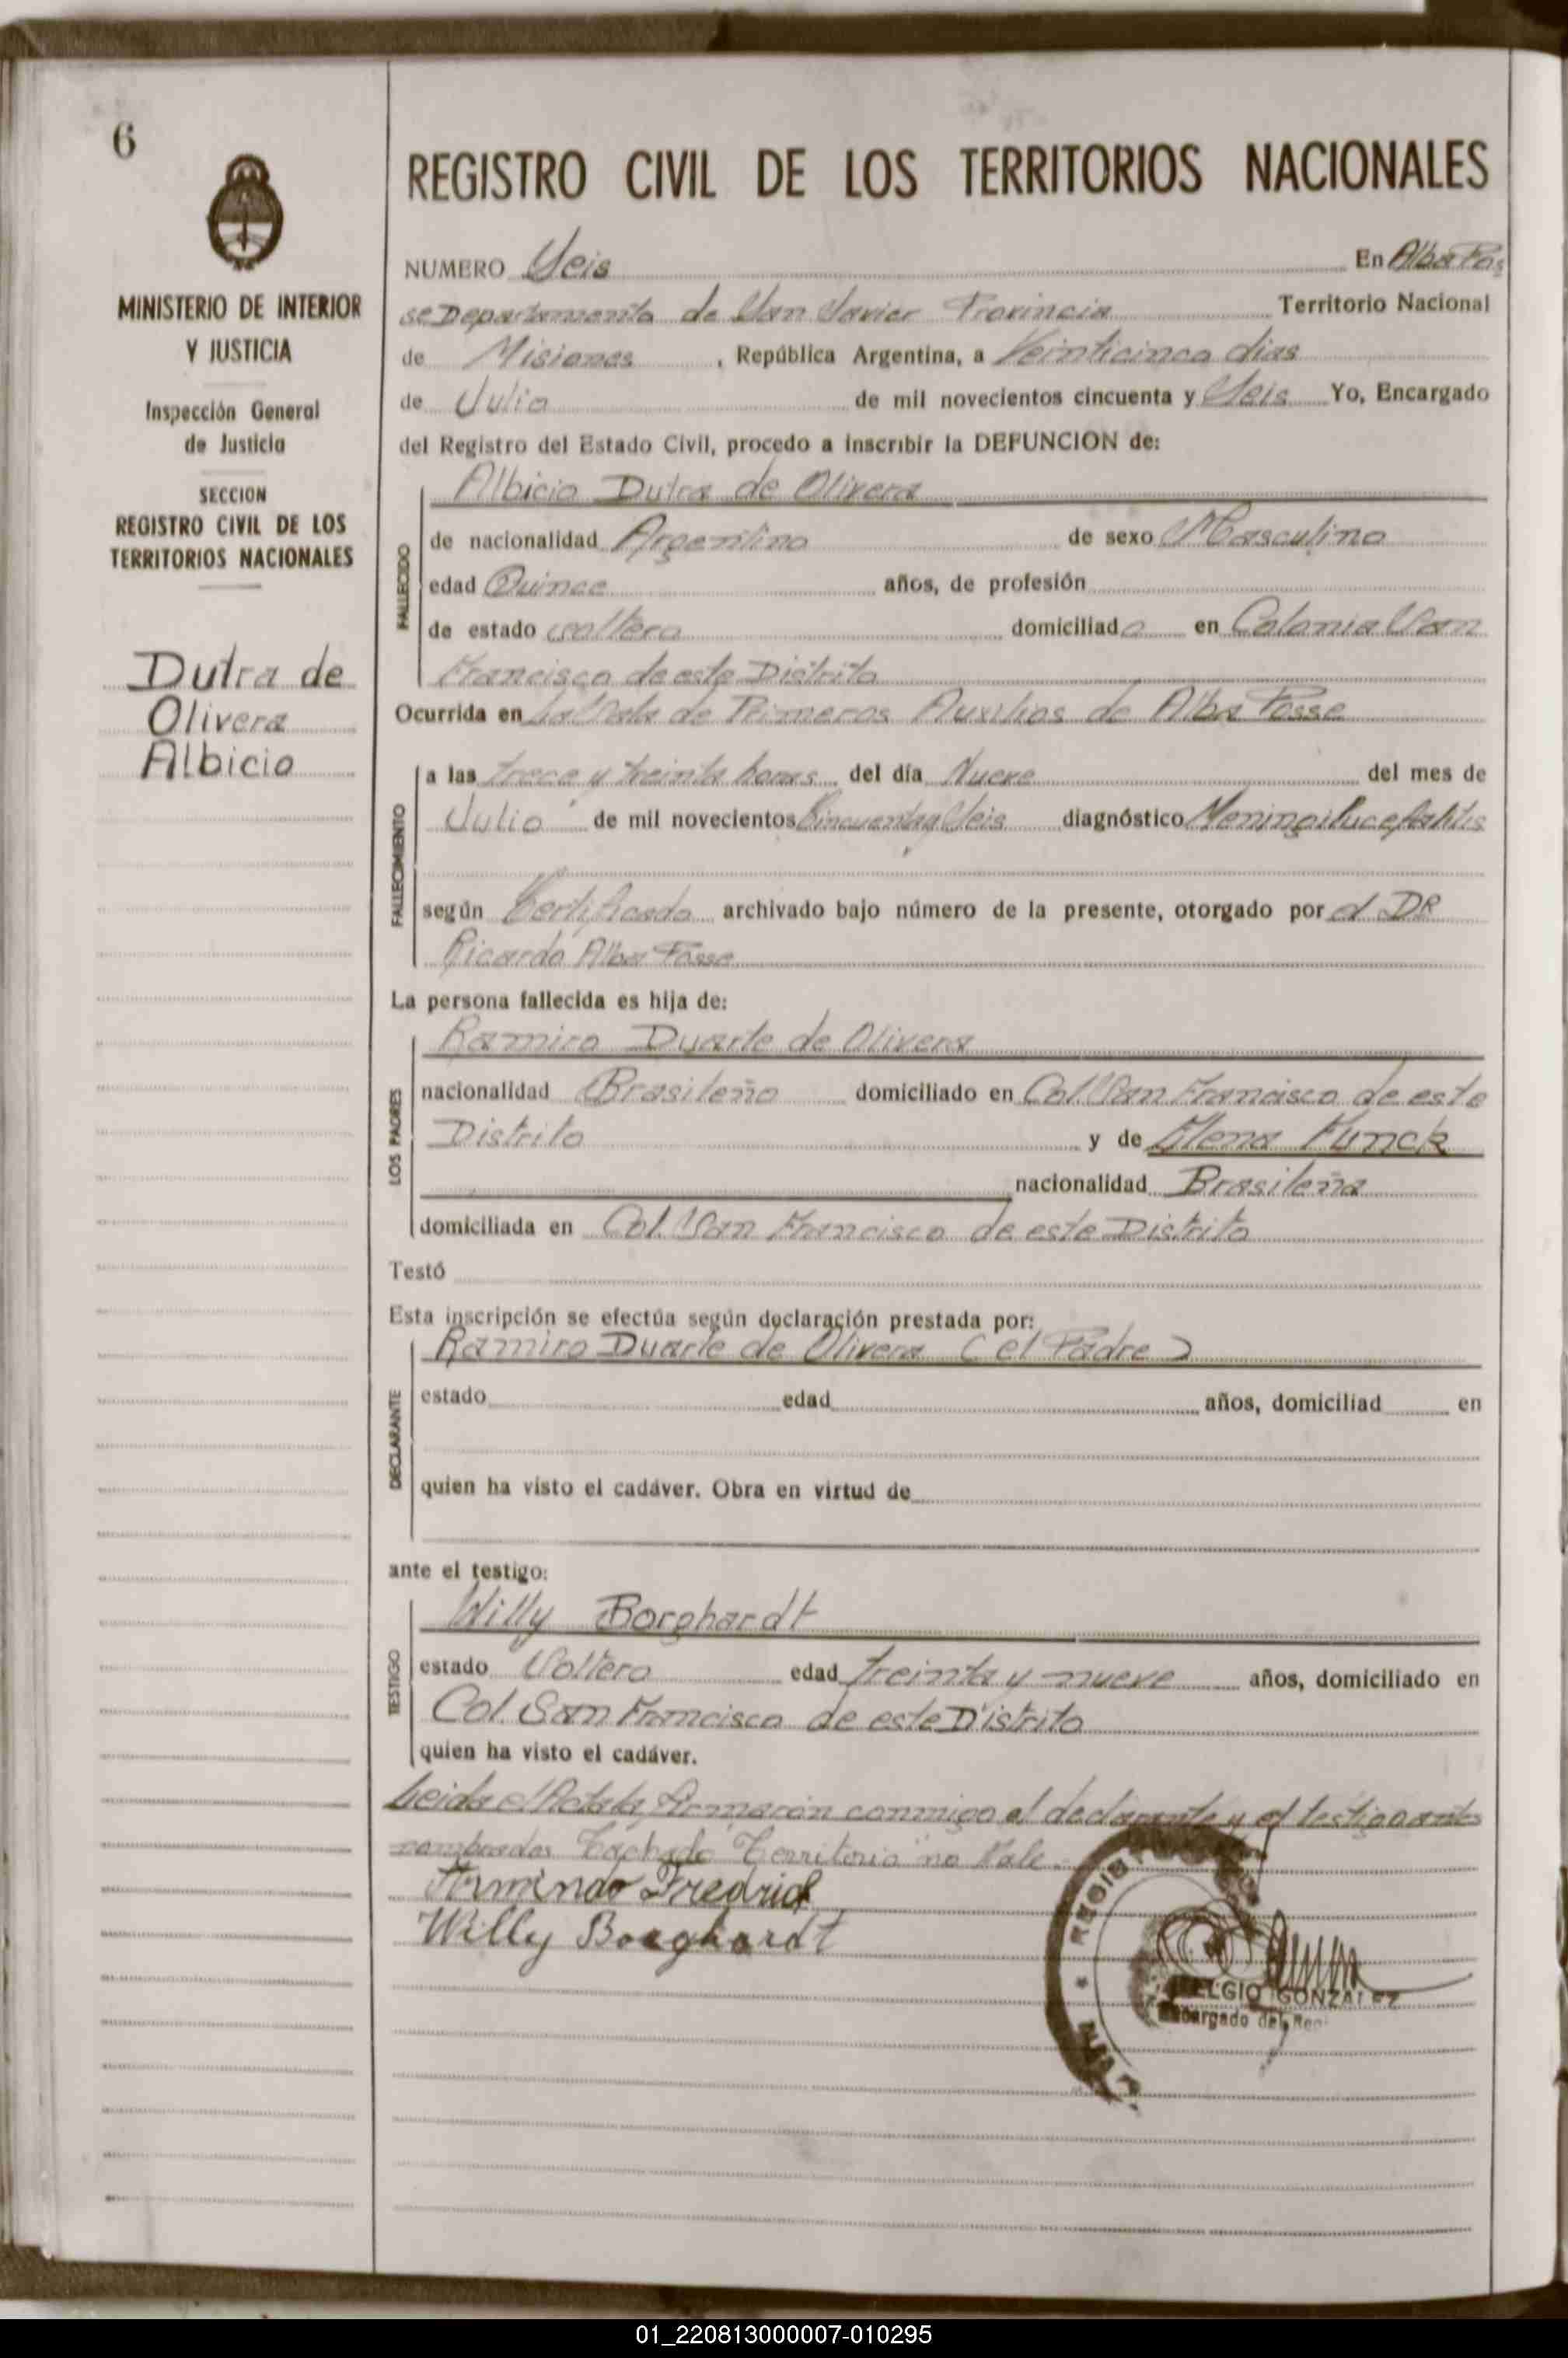 6
MINISTERIO DE INTERIOR
Y JUSTICIA
Inspección General
de Justicia
SECCION
REGISTRO CIVIL DE LOS
TERRITORIOS NACIONALES
Dutra de
Olivera
Albicio
REGISTRO CIVIL DE LOS TERRITORIOS NACIONALES
NUMERO Seis En Alba Pos
se Departamento de San Javier Provincia Territorio Nacional
de Misiones, República Argentina, a Veinticinco dias
de Julio de mil novecientos cincuenta y Seis Yo, Encargado
del Registro del Estado Civil, procedo a inscribir la DEFUNCION de:
Albicio Dutra de Olivera
FALLECIDO
de nacionalidad Argentino de sexo Masculino
edad Quince años, de profesión
de estado soltero domiciliado en Colonia San
Francisco de este Distrito
Ocurrida en la Sala de Primeros Auxilios de Alba Posse
FALLECIMIENTO
a las trece y treinta horas del día Nueve del mes de
Julio de mil novecientos Cincuenta y Seis diagnóstico
según Certificado archivado bajo número de la presente, otorgado por el DR
Ricardo Alba Posse
La persona fallecida es hija de:
LOS PADRES
Ramiro Duarte de Olivera
nacionalidad Brasileño domiciliado en Col. San Francisco de este
Distrito y de Elena Funck
nacionalidad Brasileña
domiciliada en Col. San Francisco de este Distrito
Testó
Esta inscripción se efectúa según declaración prestada por:
DECLARANTE
Ramiro Duarte de Olivera (el Padre)
estado edad años, domiciliad en
quien ha visto el cadáver. Obra en virtud de
ante el testigo:
TESTIGO
Willy Borghardt
estado Soltero edad treinta y nueve años, domiciliado en
Col. San Francisco de este Distrito
quien ha visto el cadáver.
Leida el Acta la firmarón conmigo el declarante y el testigo antes
nombrados Tachado "Territorio" no Vale.
Armindo Fredrich
Willy Borghardt
REGIS
CIVIL
ELGIO GONZALEZ
Encargado del Reg
01_220813000007-010295